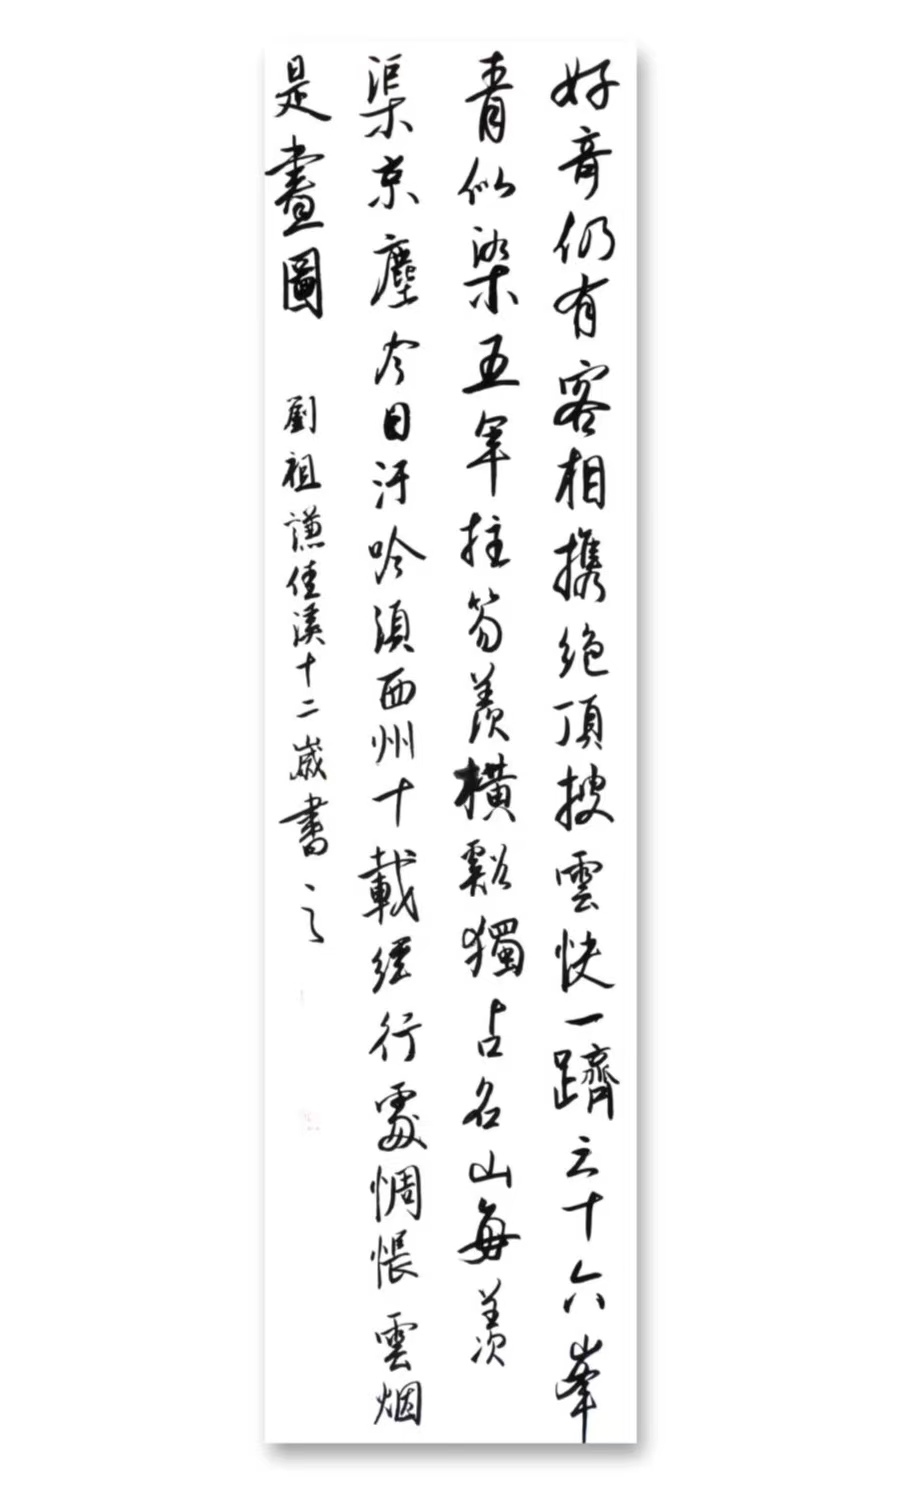 好奇仍有客相携絶頂搜雲快一躋三十六峯
青似染五年拄笏羨橫谿獨占名山每羨
渠京塵今日汙吟須西州十載經行處惆悵雲烟
是畫圖
劉祖謙佳溪十二歲書之